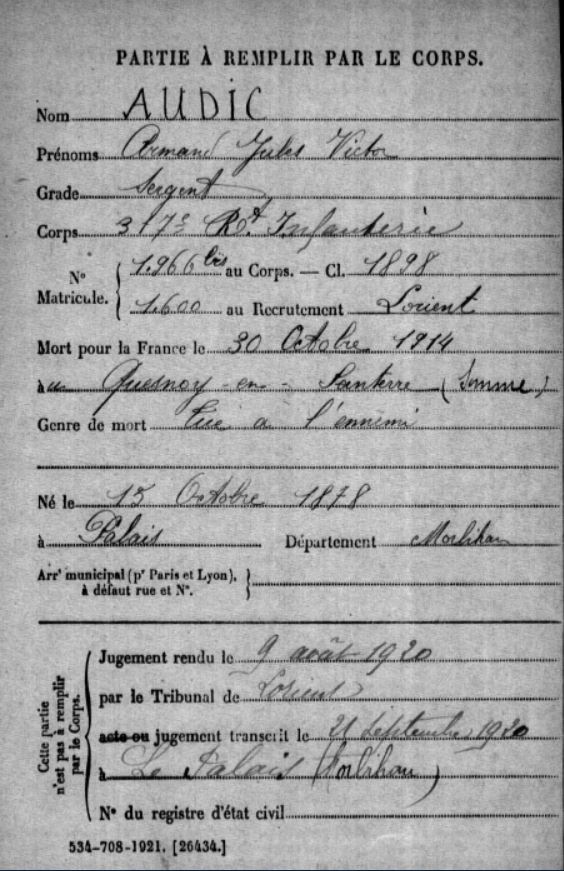 PARTIE À REMPLIR PAR LE CORPS.
Nom AUDIC
Prénoms Armand Jules Victor
Grade Sergent
Corps 317e Rgt Infanterie
N° Matricule. 1.966 bis au Corps. — Cl. 1898
1.600 au Recrutement Lorient
Mort pour la France le 30 Octobre 1914
à au Quesnoy-en-Santerre (Somme)
Genre de mort Tué à l'ennemi
Né le 15 Octobre 1878
à Palais Département Morbihan
Arrt municipal (pr Paris et Lyon),
à défaut rue et N°.
Cette partie n'est pas à remplir par le Corps.
Jugement rendu le 9 août 1920
par le Tribunal de Lorient
acte ou jugement transcrit le 21 Septembre 1920
à Le Palais (Morbihan)
N° du registre d'état civil
534-708-1921. [26434.]